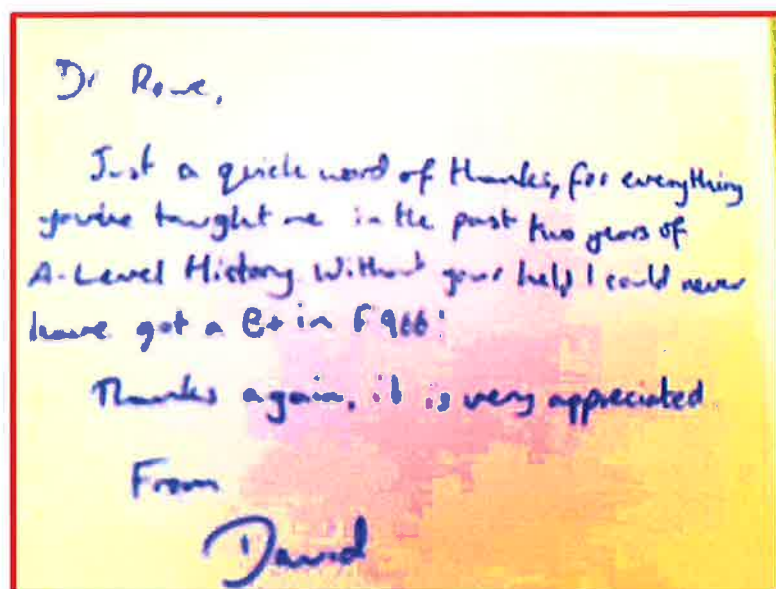 Dr Rowe,
Just a quick word of thanks, for everything
you've taught me in the past two years of
A-Level History. Without your help I could never
have got a B+ in F966!
Thanks again, it is very appreciated
From
David